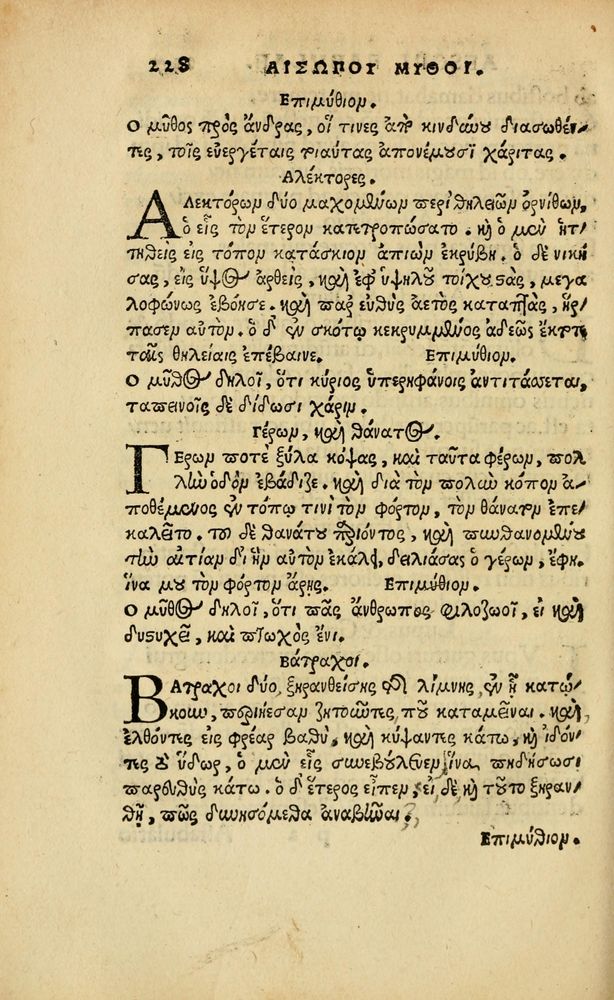 228 ΑΙΣΩΠΟΥ ΜΥΘΟΙ.
Επιμύθιον.
Ο μῦθος πρὸς ἄνδρας, οἵ τινες ἀπὸ κινδύνου διασωθέν-
τες, τοῖς εὐεργέταις τοιαύτας απονέμουσι χάριτας.
Αλέκτορες.
ΑΛεκτόρων δύο μαχομένων περὶ θηλειῶν ὀρνίθων,
ὁ εἷς τὸν ἕτερον κατετροπώσατο. καὶ ὁ μὲν ἡτ-
τηθεὶς εἰς τόπον κατάσκιον ἀπιὼν ἐκρύβη. ὁ δὲ νική
σας, εἰς ὕψος ἀρθεὶς, καὶ ἐφ' ὑψηλοῦ τοίχου στὰς, μεγα
λοφώνως ἐβόησε. καὶ παρευθὺς αετὸς καταπτὰς, ἥρ-
πασεν αὐτόν. ὁ δ' ἐν σκότῳ κεκρυμμένος ἀδεῶς ἔκτοτε
ταῖς θηλείαις ἐπέβαινε. Επιμύθιον.
Ο μῦθος δηλοῖ, ὅτι κύριος ὑπερηφάνοις ἀντιτάσσεται,
ταπεινοῖς δὲ δίδωσι χάριν.
Γέρων, καὶ θάνατος.
ΓΕρων ποτὲ ξύλα κόψας, καὶ ταῦτα φέρων, πολ
λὴν ὁδὸν ἐβάδιζε. καὶ διὰ τὸν πολὺν κόπον ἀ-
ποθέμενος ἐν τόπῳ τινὶ τὸν φόρτον, τὸν θάνατον ἐπε-
καλεῖτο. τοῦ δὲ θανάτου παριόντος, καὶ πυνθανομένου
τὴν αἰτίαν δι' ἣν αὐτὸν ἐκάλει, δειλιάσας ὁ γέρων, ἔφη.
ἵνα μου τὸν φόρτον ἄρῃς. Επιμύθιον.
Ο μῦθος δηλοῖ, ὅτι πᾶς ἄνθρωπος φιλοζωοῖ, εἰ καὶ
δυστυχεῖ, καὶ πτωχὸς ἔνι.
Βάτραχοι.
ΒΑτραχοι δύο, ξηρανθείσης τῆς λίμνης, ἐν ᾗ κατῴ-
κουν, περιῄεσαν ζητοῦντες ποῦ καταμεῖναι. καὶ
ἐλθόντες εἰς φρέαρ βαθὺ, καὶ κύψαντες κάτω, καὶ ἰδόν-
τες τὸ ὕδωρ, ὁ μὲν εἷς συνεβούλευεν ἵνα πηδήσωσι
παρευθὺς κάτω. ὁ δ' ἕτερος εἶπεν, εἰ δὲ καὶ τοῦτο ξηραν-
θῇ, πῶς δυνησόμεθα ἀναβῆναι;
Επιμύθιον.